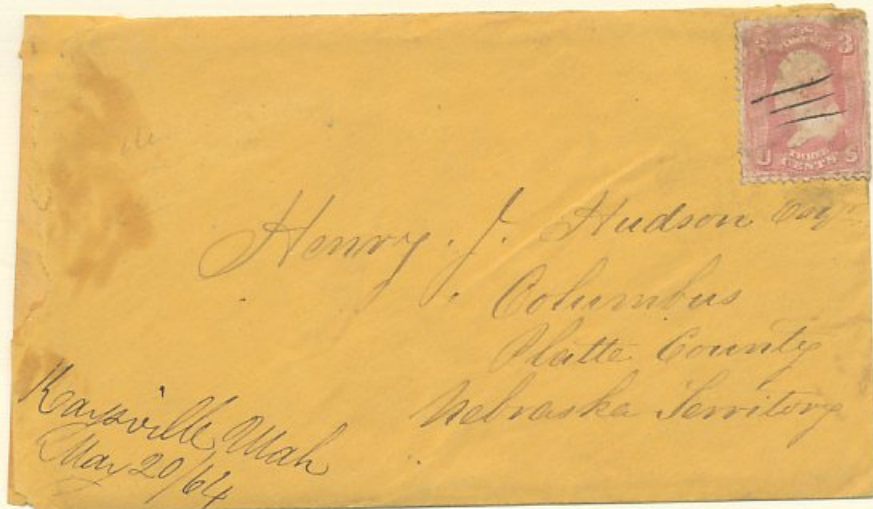 3
THREE
U CENTS S
Henry. J. Hudson Esqr
Columbus
Platte County
Nebraska Territory
Kaysville Utah
May 20/64